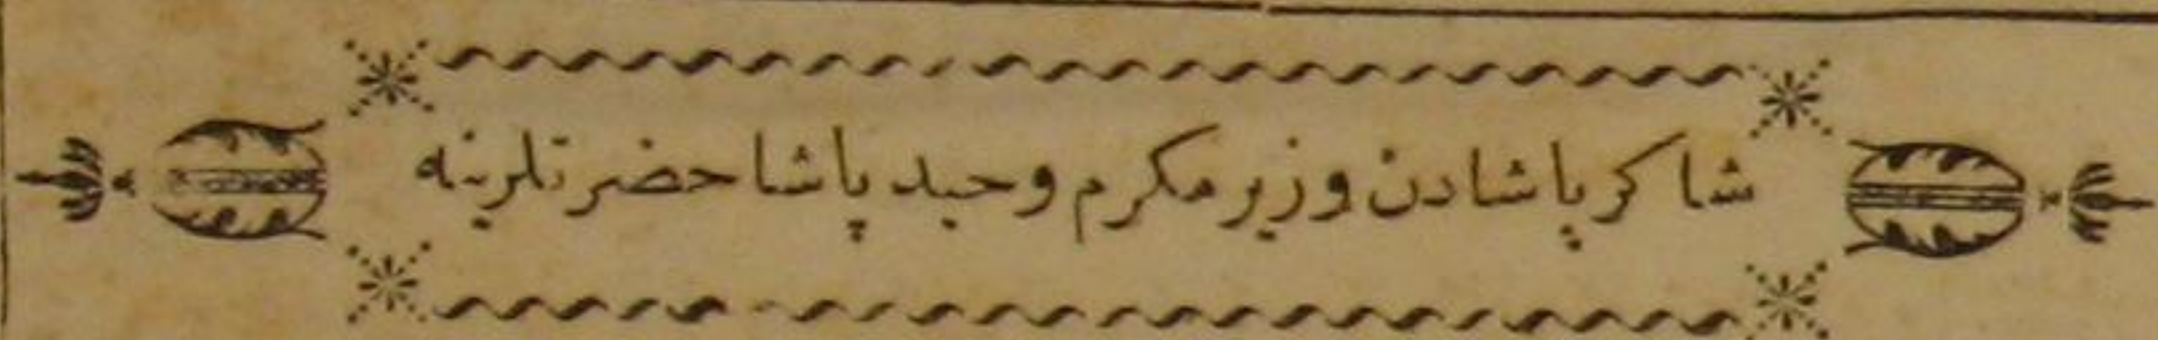 شاكر پاشادن وزير مكرم وحيد پاشا حضرتلرينه